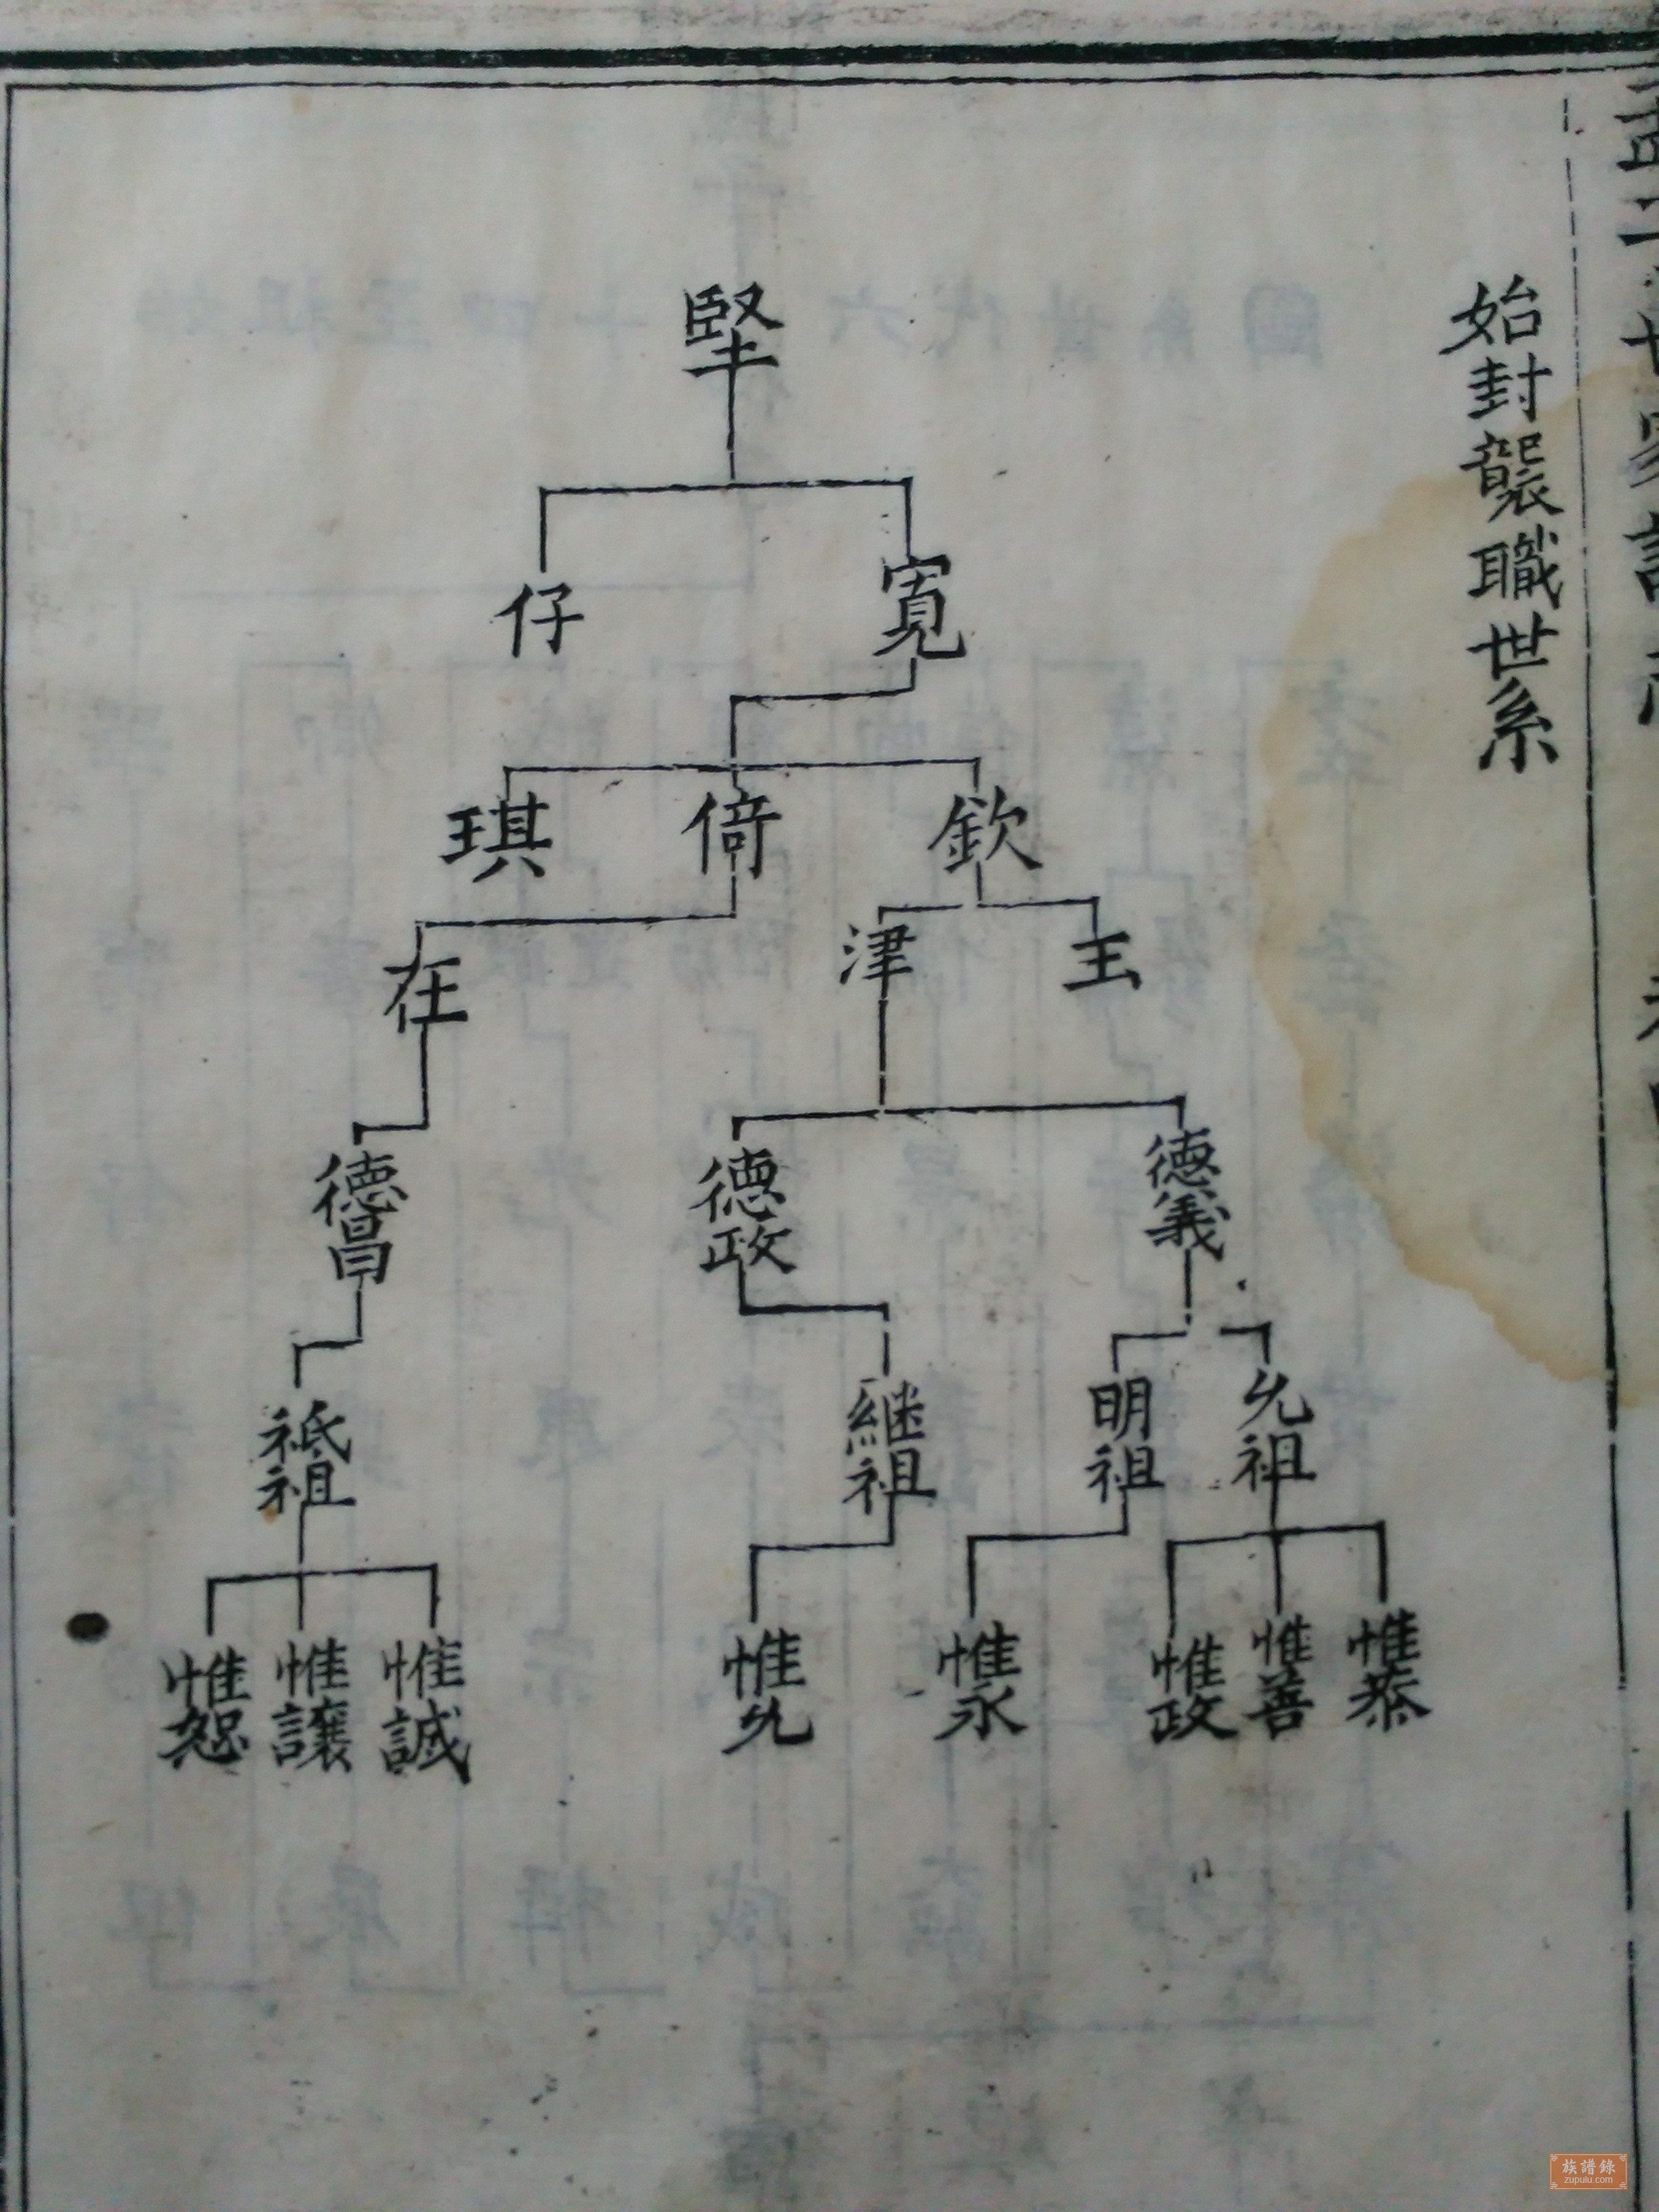 始封襲職世系
堅
寬
仔
欽
倚
琪
玉
津
在
德義
德政
德昌
允祖
明祖
繼祖
祗祖
惟恭
惟善
惟政
惟永
惟允
惟誠
惟讓
惟恕
族譜錄
zupulu.com